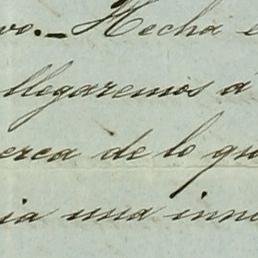 vo._ Hecha e
llegaremos á
erca de lo qu
ia una inn